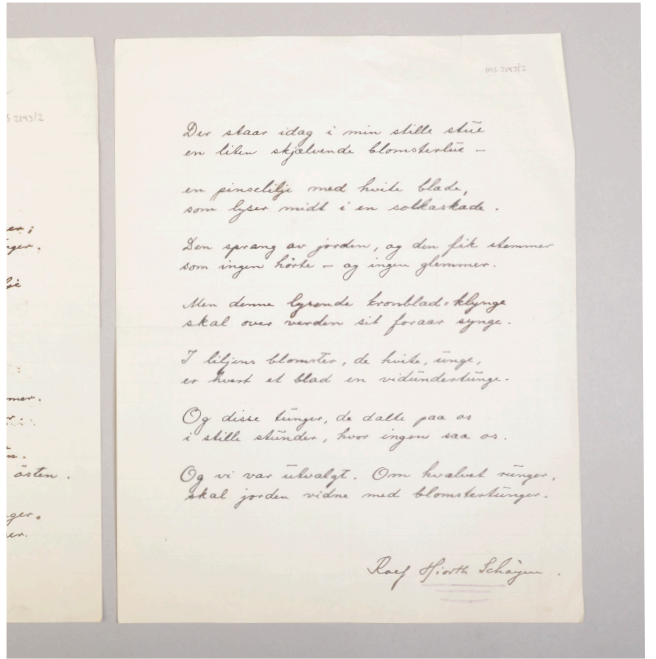 MS 2193/2
Der staar idag i min stille stue
en liten skjælvende blomsterlue –
en pinselilje med hvite blade,
som lyser midt i en solkaskade.
Den sprang av jorden, og den fik stemmer
som ingen hørte – og ingen glemmer.
Men denne lysende kronblad-klynge
skal over verden sit foraar synge.
I liljens blomster, de hvite, unge,
er hvert et blad en vidundertunge.
Og disse tunger, de dalte paa os
i stille stunder, hvor ingen saa os.
Og vi var utvalgt. Om hvalvet runger,
skal jorden vidne med blomstertunger.
Rolf Hiorth Schøyen.
2193/2
østen.